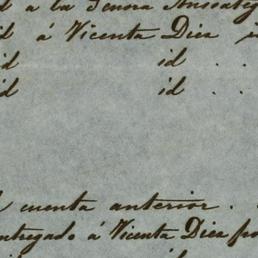 d a la Senora
id á Vicenta Diez
id id . .
id id . .
cuenta anterior .
entregado á Vicenta Diez po